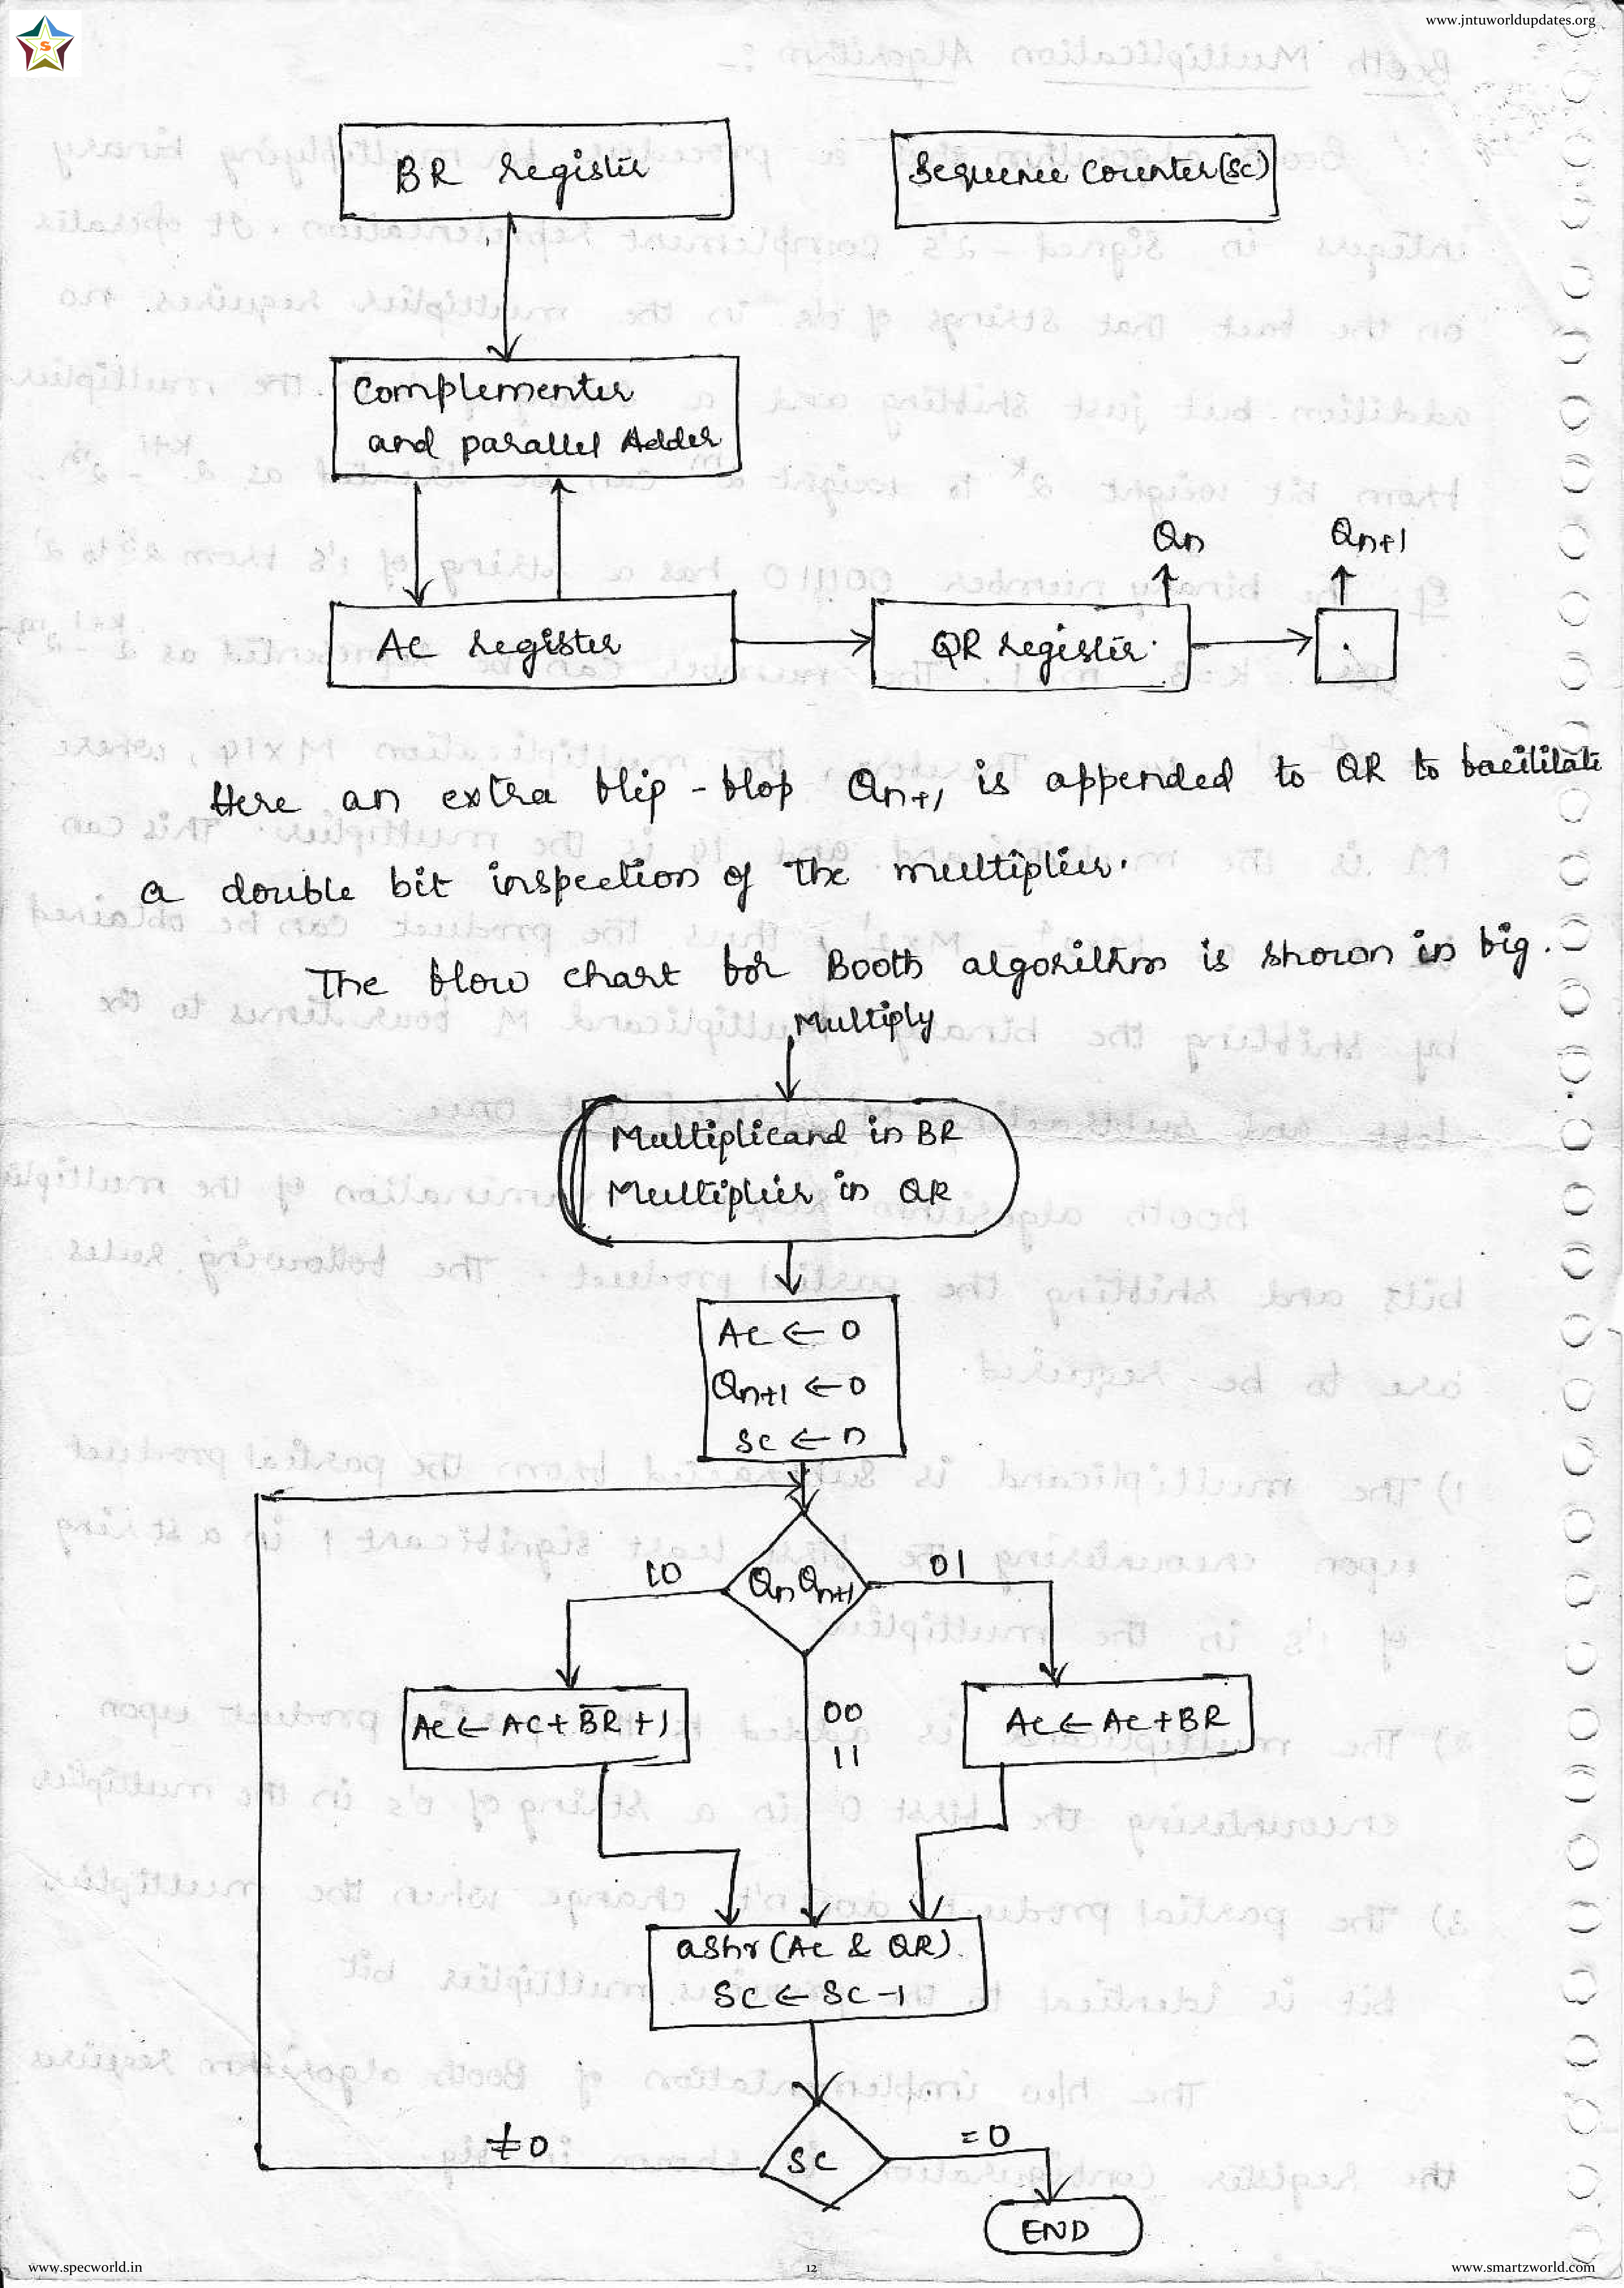 www.jntuworldupdates.org
S
BR Register
Sequence Counter (SC)
Complementer
and parallel Adder
Qn
Qn+1
AC Register
QR Register.
Here an extra flip-flop Qn+1 is appended to QR to facilitate
a double bit inspection of the multiplier.
The flow chart for Booth algorithm is shown in fig.
Multiply
Multiplicand in BR
Multiplier in QR
AC ← 0
Qn+1 ← 0
SC ← n
10
QnQn+1
01
AC ← AC + B̅R̅ + 1
00
11
AC ← AC + BR
ashr (AC & QR).
SC ← SC - 1
≠0
SC
=0
END
www.specworld.in
12
www.smartzworld.com